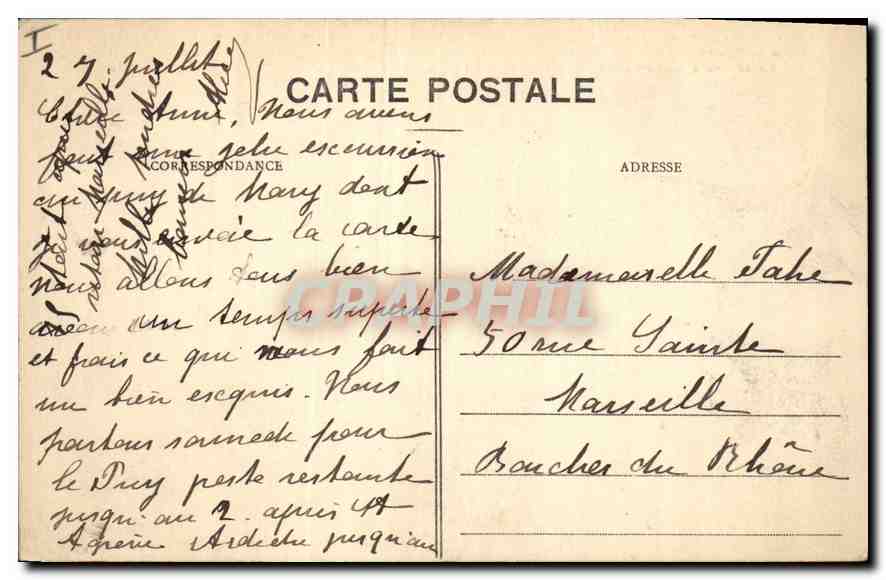 I
27 juillet
CARTE POSTALE
Chère Anne, Nous avons
fait une jolie excursion
CORRESPONDANCE
ADRESSE
au puy de Mary dont
je vous envoie la carte.
nous allons tous bien
avec un temps superbe
et frais ce qui nous fait
un bien exquis. Nous
partons samedi pour
le Puy poste restante
jusqu'au 2. après St
Agrève Ardèche jusqu'au
Mille tendresses
retour Marseille
Mademoiselle
50 rue Sainte
Marseille
Bouches du Rhône
CPAPHIL